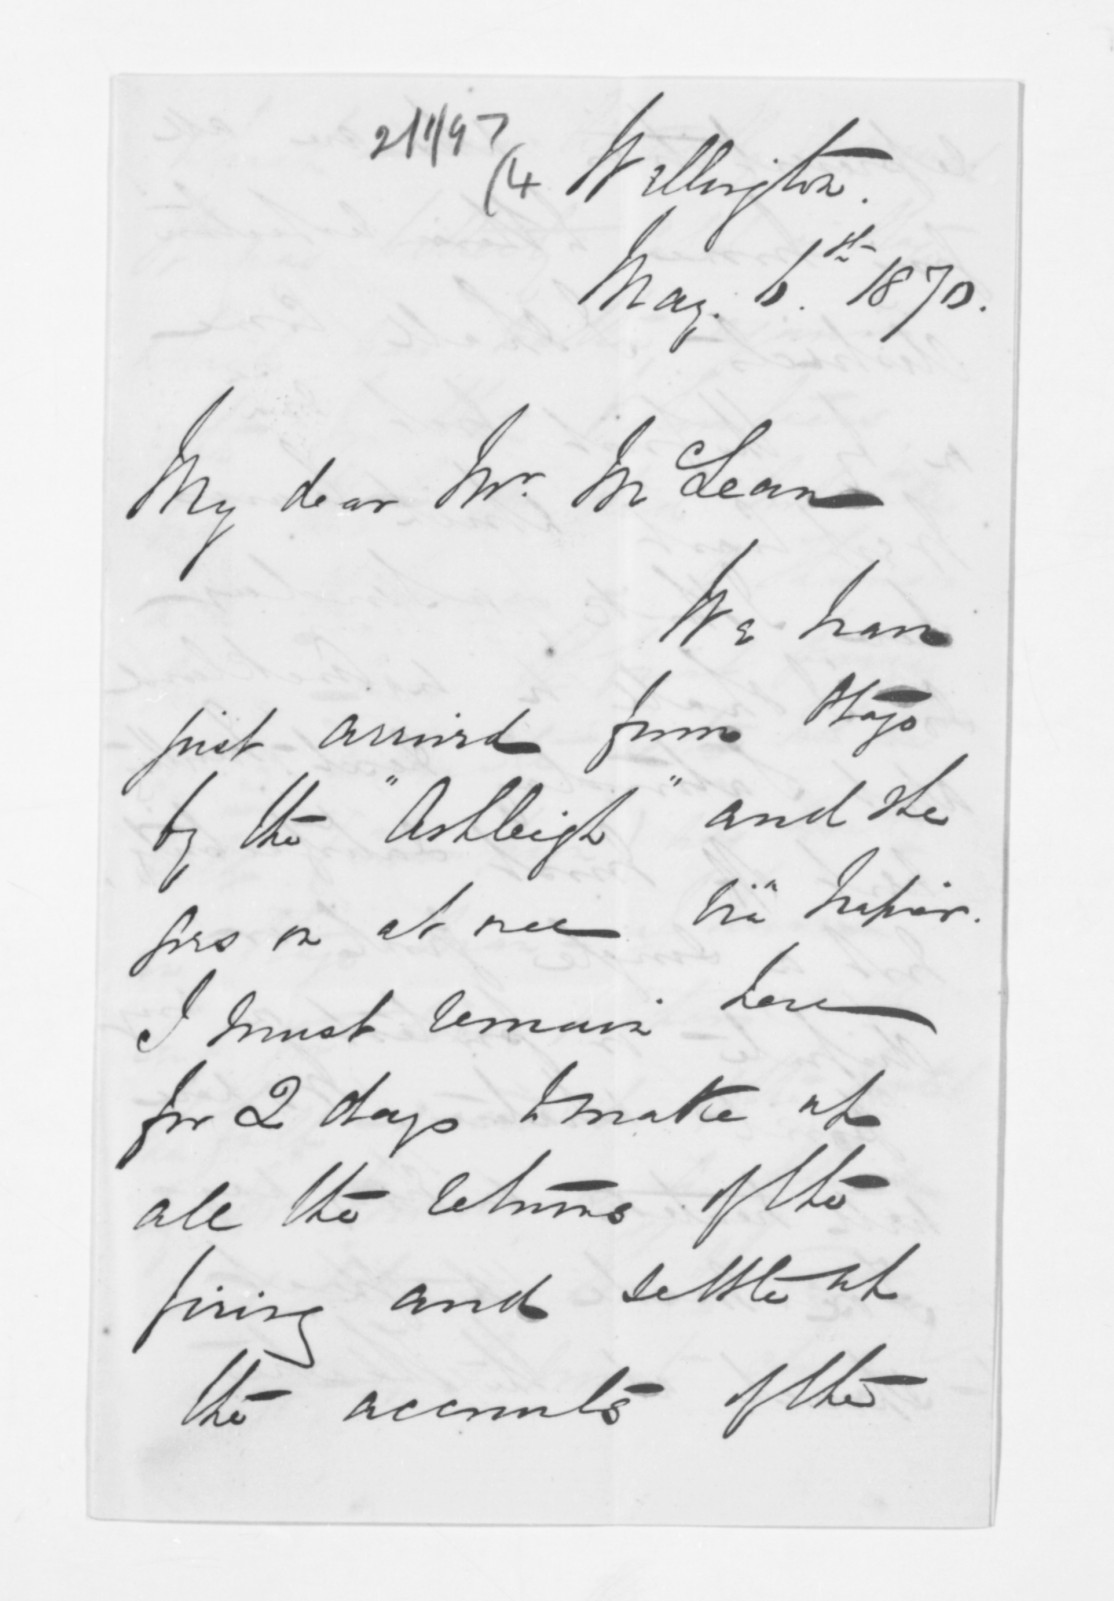 21/1/97
(4
Wellington.
May. 6.th 1870.
My dear Mr. McLean
We have
just arrived from Otago
by the "Ashleigh" and she
goes on at once via Napier.
I must remain here
for 2 days to make up
all the returns of the
firing and settle up
the accounts of the